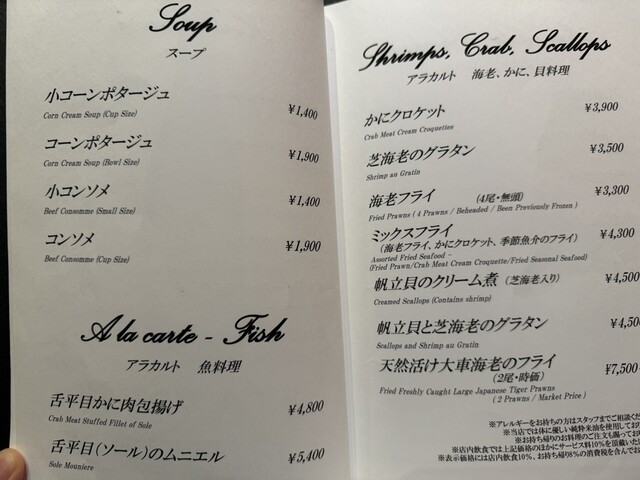 Soup
スープ
小コーンポタージュ
Corn Cream Soup (Cup Size)
¥1,400
コーンポタージュ
Corn Cream Soup (Bowl Size)
¥1,900
小コンソメ
Beef Consomme (Small Size)
¥1,400
コンソメ
Beef Consomme (Cup Size)
¥1,900
A la carte - Fish
アラカルト 魚料理
舌平目かに肉包揚げ
Crab Meat Stuffed Fillet of Sole
¥4,800
舌平目(ソール)のムニエル
Sole Mouniere
¥5,400
Shrimps, Crab, Scallops
アラカルト 海老、かに、貝料理
かにクロケット
Crab Meat Cream Croquettes
¥3,900
芝海老のグラタン
Shrimp au Gratin
¥3,500
海老フライ (4尾・無頭)
Fried Prawns ( 4 Prawns / Beheaded / Been Previously Frozen )
¥3,300
ミックスフライ
(海老フライ、かにクロケット、季節魚介のフライ)
Assorted Fried Seafood -
(Fried Prawn/Crab Meat Cream Croquette/Fried Seasonal Seafood)
¥4,300
帆立貝のクリーム煮 (芝海老入り)
Creamed Scallops (Contains shrimp)
¥4,500
帆立貝と芝海老のグラタン
Scallops and Shrimp au Gratin
¥4,50
天然活け大車海老のフライ
(2尾・時価)
Fried Freshly Caught Large Japanese Tiger Prawns
( 2 Prawns / Market Price )
¥7,500
※アレルギーをお持ちの方はスタッフまでご相談くだ
※当店では体に優しい純粋米油を使用してお
※お持ち帰りのお料理のご注文も賜ってお
※店内飲食では上記価格のほかにサービス料10%を頂戴いた
※表示価格には店内飲食10%、お持ち帰り8%の消費税を含んでお